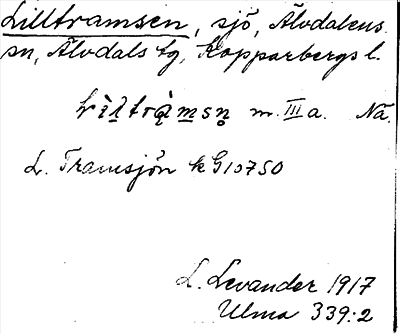 Lilltramsen, sjö, Älvdalens
sn, Älvdals tg, Kopparbergs l.
m. III a. Na.
L. Tramsjön k G10750
L. Levander 1917
Ulma 339:2